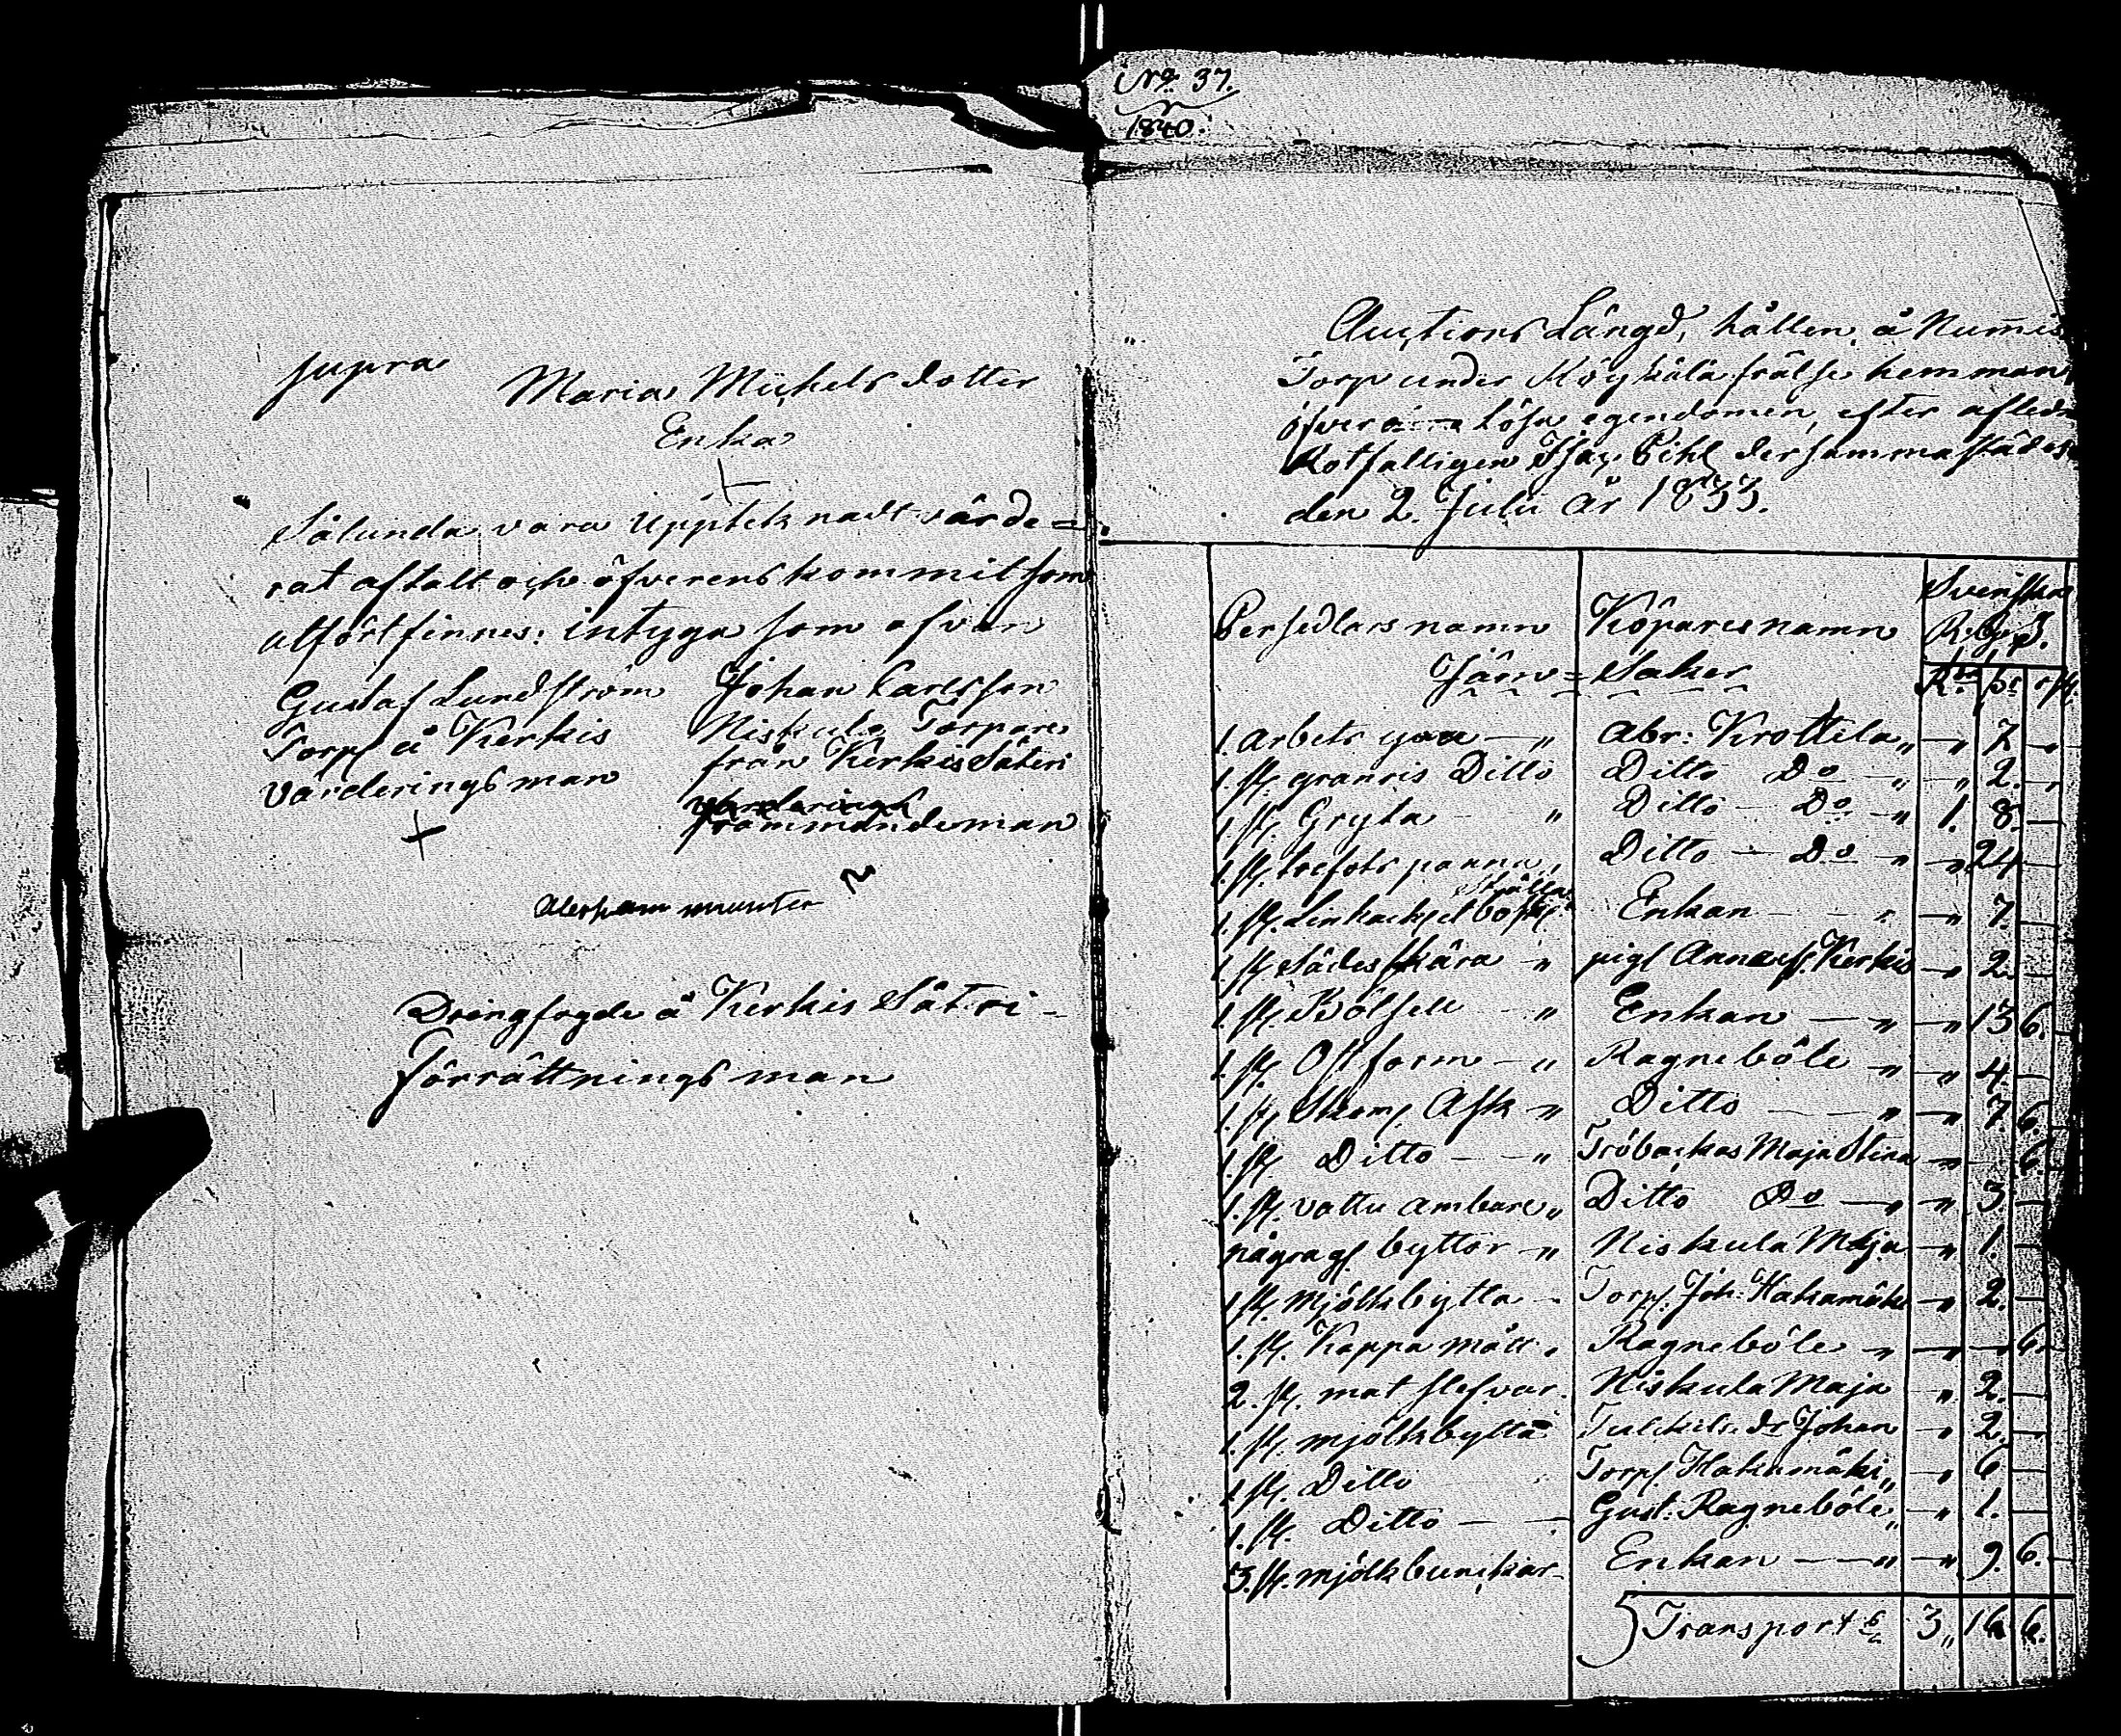 supra
Maria Michels dotter
Enka
Sålunda vara uppteknadt värde=
rat aftalt och öfverenskommit som
alfört finnes: intyga som ofvan
Gustaf Lundström Johan Carlsson
Torp. å Kerkis Niskula Torpare
värderingsman från Kerkis Säteri
frammandeman
Abraham munter
Drengfogde å Kerkis Säteri
Förrättningsman
No. 37.
1840.
Auctions Längd, hållen å Nummis
Torp under Köykälä frälse hemman,
öfver lösa egendomen, efter afledn
Rotfattigen Isac Pihl dersammastädes
den 2. Julii år 1833.
Persedlars namn Köpares namn Svenska R:g:s.
Järn=Saker Rdr s. r st.
1. arbets yxa — " Abr: Krottila " — " 7 —
1. st. granris Ditto Ditto Do — " — " 2. —
1 st. Gryta " Ditto — Do — " 1. 8. —
1. st. trefots panna " Ditto — Do — " — " 24 —
1. st. Linhäckel Enkan — — " — " 7. —
1. st. Sädes skära — " pig. Anna Kerkis — " 2. —
1. st. Bölsell — " Enkan — " — " 13 6. —
1. st. Ostform — " Ragneböle — " — " 4. —
1. st. Skom. Ask — " Ditto — — " — " 7. 6.
1. st. Ditto — — " Tröbackas Maja Stina — " — 6.
1. st. vattu ambare " Ditto Do — " — " 3 —
några gl. byttor — " Niskula Maja — " 1. —
1 st. mjölkbytta — Torp. Joh: Hakamäki — " 2. —
1. st. Kappa mått " Ragneböle — " — " — 6.
2. st. mat slefvar. Niskula Maja " 2. —
1. st. mjölkbytta dr Johan — " 2. —
1. st. Ditto Torp. Hakamäki " — " 6 —
1. st. Ditto — — Gust: Ragneböle " — " 1. —
3. st. mjölkbunckar — Enkan — — " — " 9. 6. —
Transport 3 " 16 6.